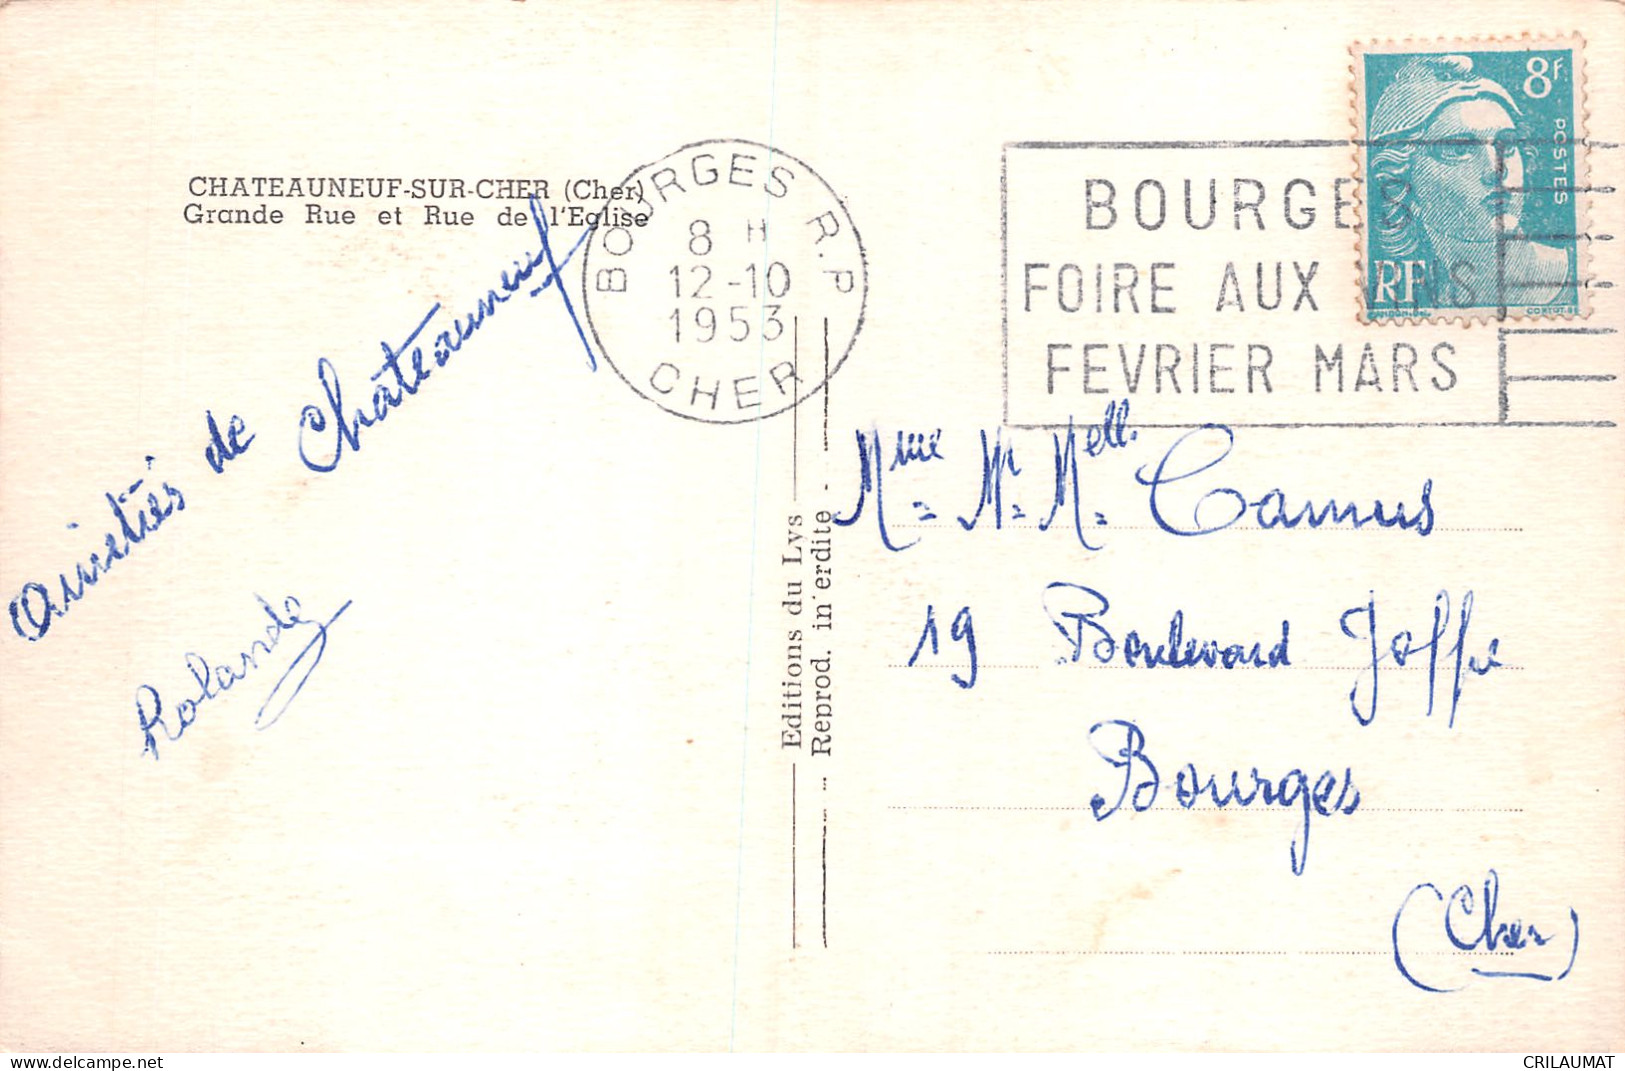 CHATEAUNEUF-SUR-CHER (Cher)
Grande Rue et Rue de l'Eglise
amitiés de Châteauneuf
Rolande
BOURGES R.P
8 H
12-10
1953
CHER
BOURGES
FOIRE AUX VINS
FEVRIER MARS
8F
POSTES
RF
GANDON.DEL
Editions du Lys
Reprod. in erdite
Mme M. Mell. Camus
19 Boulevard Joffre
Bourges
(Cher)
www.delcampe.net
CRILAUMAT